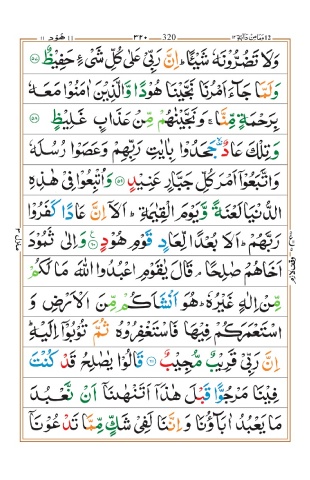 ومامن دآبة ١٢ 320 ٣٢٠ هود ١١
وَلَا تَضُرُّوْنَهٗ شَيْـًٔا ؕ اِنَّ رَبِّىْ عَلٰى كُلِّ شَىْءٍ حَفِيْظٌ ﴿۵۷﴾
وَلَمَّا جَآءَ اَمْرُنَا نَجَّيْنَا هُوْدًا وَّالَّذِيْنَ اٰمَنُوْا مَعَهٗ
بِرَحْمَةٍ مِّنَّا ۚ وَنَجَّيْنٰهُمْ مِّنْ عَذَابٍ غَلِيْظٍ ﴿۵۸﴾
وَتِلْكَ عَادٌ ۙ جَحَدُوْا بِاٰيٰتِ رَبِّهِمْ وَعَصَوْا رُسُلَهٗ
وَاتَّبَعُوْۤا اَمْرَ كُلِّ جَبَّارٍ عَنِيْدٍ ﴿۵۹﴾ وَاُتْبِعُوْا فِىْ هٰذِهِ
الدُّنْيَا لَعْنَةً وَّيَوْمَ الْقِيٰمَةِ ؕ اَلَاۤ اِنَّ عَادًا كَفَرُوْا
رَبَّهُمْ ؕ اَلَا بُعْدًا لِّعَادٍ قَوْمِ هُوْدٍ ﴿۶۰﴾ وَاِلٰى ثَمُوْدَ
اَخَاهُمْ صٰلِحًا ۘ قَالَ يٰقَوْمِ اعْبُدُوا اللّٰهَ مَا لَكُمْ
مِّنْ اِلٰهٍ غَيْرُهٗ ؕ هُوَ اَنْشَاَكُمْ مِّنَ الْاَرْضِ وَ
اسْتَعْمَرَكُمْ فِيْهَا فَاسْتَغْفِرُوْهُ ثُمَّ تُوْبُوْۤا اِلَيْهِ ؕ
اِنَّ رَبِّىْ قَرِيْبٌ مُّجِيْبٌ ﴿۶۱﴾ قَالُوْا يٰصٰلِحُ قَدْ كُنْتَ
فِيْنَا مَرْجُوًّا قَبْلَ هٰذَاۤ اَتَنْهٰىنَاۤ اَنْ نَّعْبُدَ
مَا يَعْبُدُ اٰبَآؤُنَا وَاِنَّنَا لَفِىْ شَكٍّ مِّمَّا تَدْعُوْنَاۤ